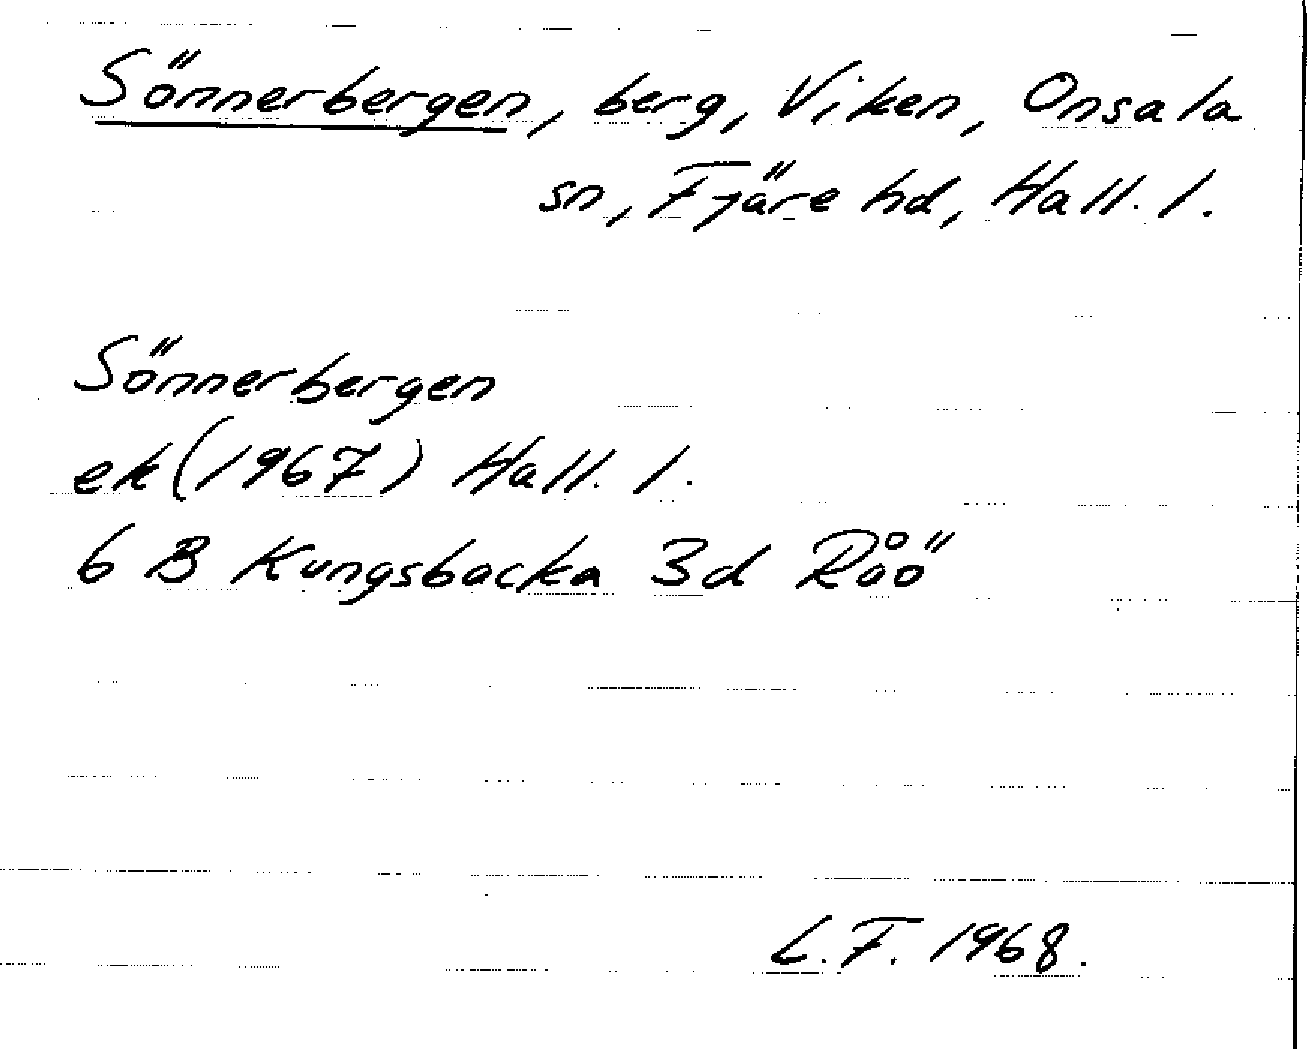 Sönnerbergen, berg, Viken, Onsala
sn, Fjäre hd, Hall. l.
Sönnerbergen
ek (1967) Hall. l.
6 B Kungsbacka 3d Råö
L.F. 1968.